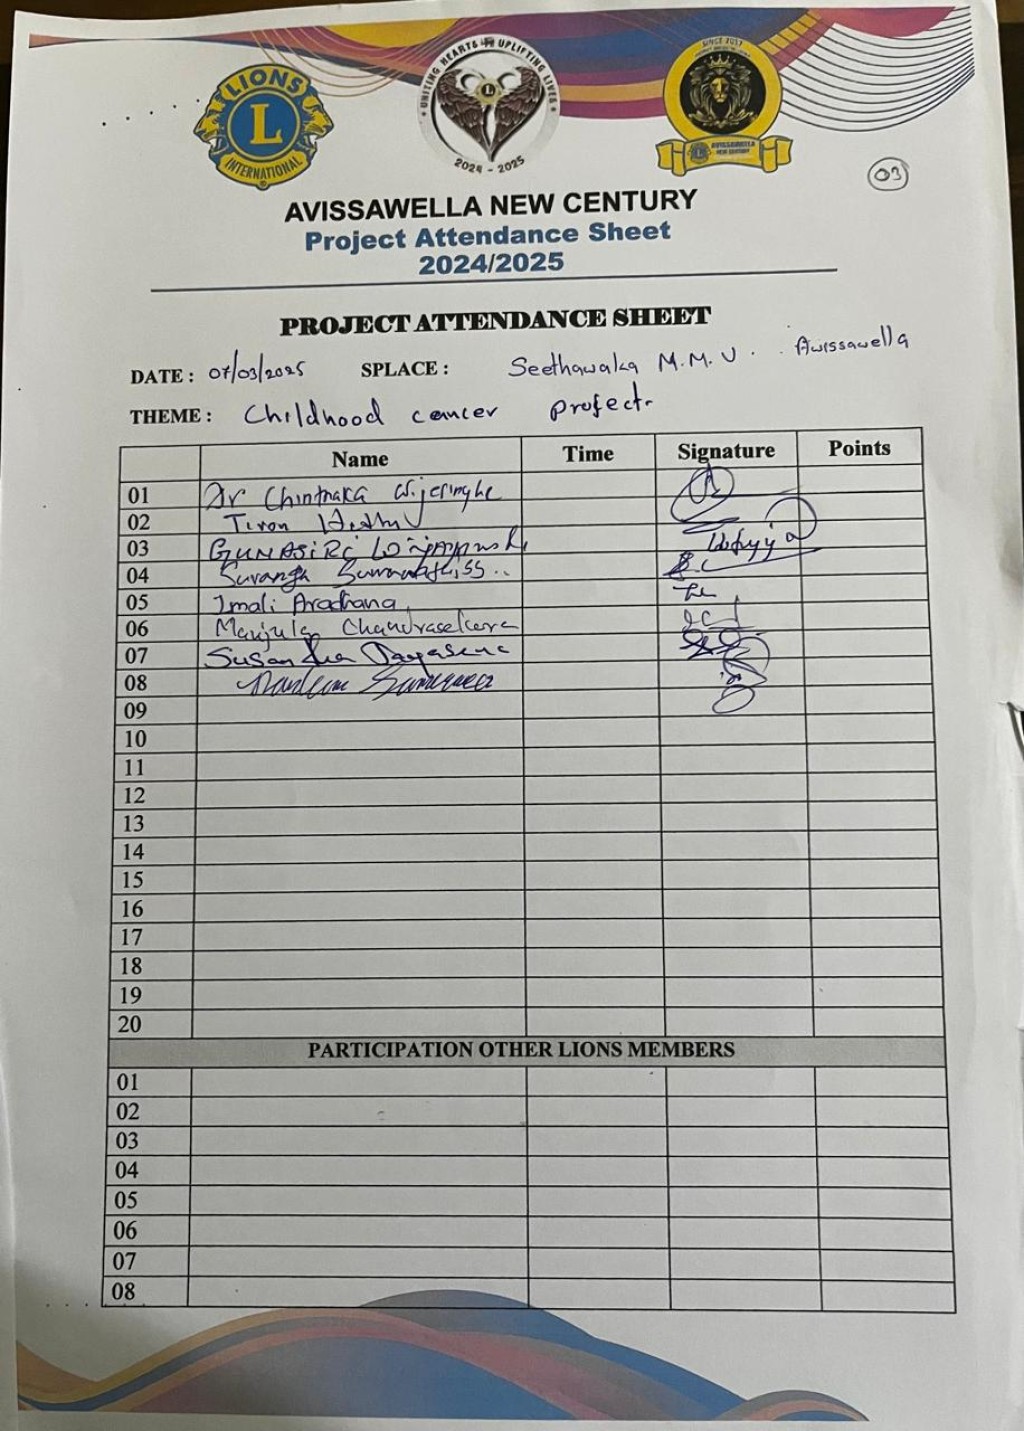 LIONS
L
INTERNATIONAL
UNITING HEARTS UPLIFTING LIVES
2024 - 2025
SINCE 2017
AVISSAWELLA
NEW CENTURY
03
AVISSAWELLA NEW CENTURY
Project Attendance Sheet
2024/2025
PROJECT ATTENDANCE SHEET
DATE : 07/03/2025 SPLACE : Seethawaka M.M.V. Avissawella
THEME : Childhood cancer project
Name Time Signature Points
01 Dr Chinthaka Wijesinghe
02 Tiron
03 GUNASIRI
04 Suranga
05 Imali Aradhana
06 Manjula Chandrasekara
07 Susantha Jayasena
08
09
10
11
12
13
14
15
16
17
18
19
20
PARTICIPATION OTHER LIONS MEMBERS
01
02
03
04
05
06
07
08